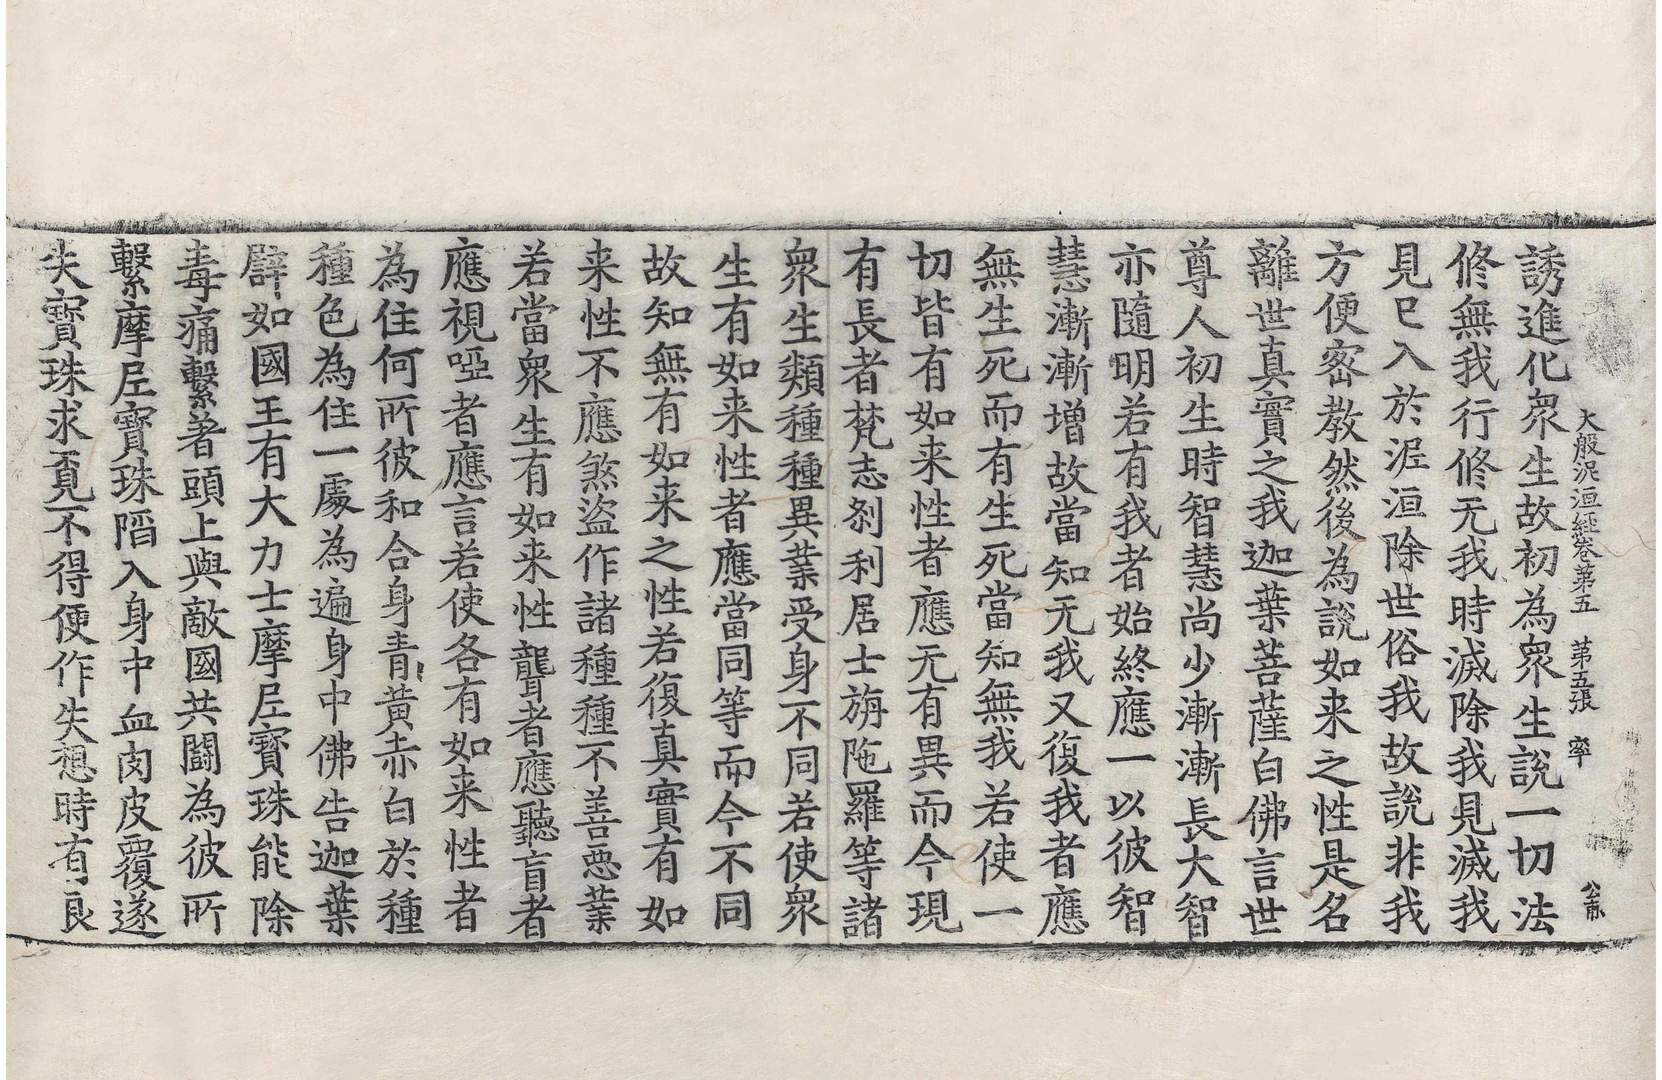 大般泥洹經卷第五 第五張 率
誘進化衆生故初為衆生說一切法
修無我行修无我時滅除我見滅我
見已入於泥洹除世俗我故說非我
方便密教然後為說如来之性是名
離世真實之我迦葉菩薩白佛言世
尊人初生時智慧尚少漸漸長大智
亦隨明若有我者始終應一以彼智
慧漸漸增故當知无我又復我者應
無生死而有生死當知無我若使一
切皆有如来性者應无有異而今現
有長者梵志刹利居士旃陁羅等諸
衆生類種種異業受身不同若使衆
生有如来性者應當同等而今不同
故知無有如来之性若復真實有如
来性不應煞盜作諸種種不善惡業
若當衆生有如来性聾者應聽盲者
應視啞者應言若使各有如来性者
為住何所彼和合身青黃赤白於種
種色為住一處為遍身中佛告迦葉
譬如國王有大力士摩尼寶珠能除
毒痛繫著頭上與敵國共鬪為彼所
繫摩尼寶珠陷入身中血肉皮覆遂
失寶珠求覓不得便作失想時有良